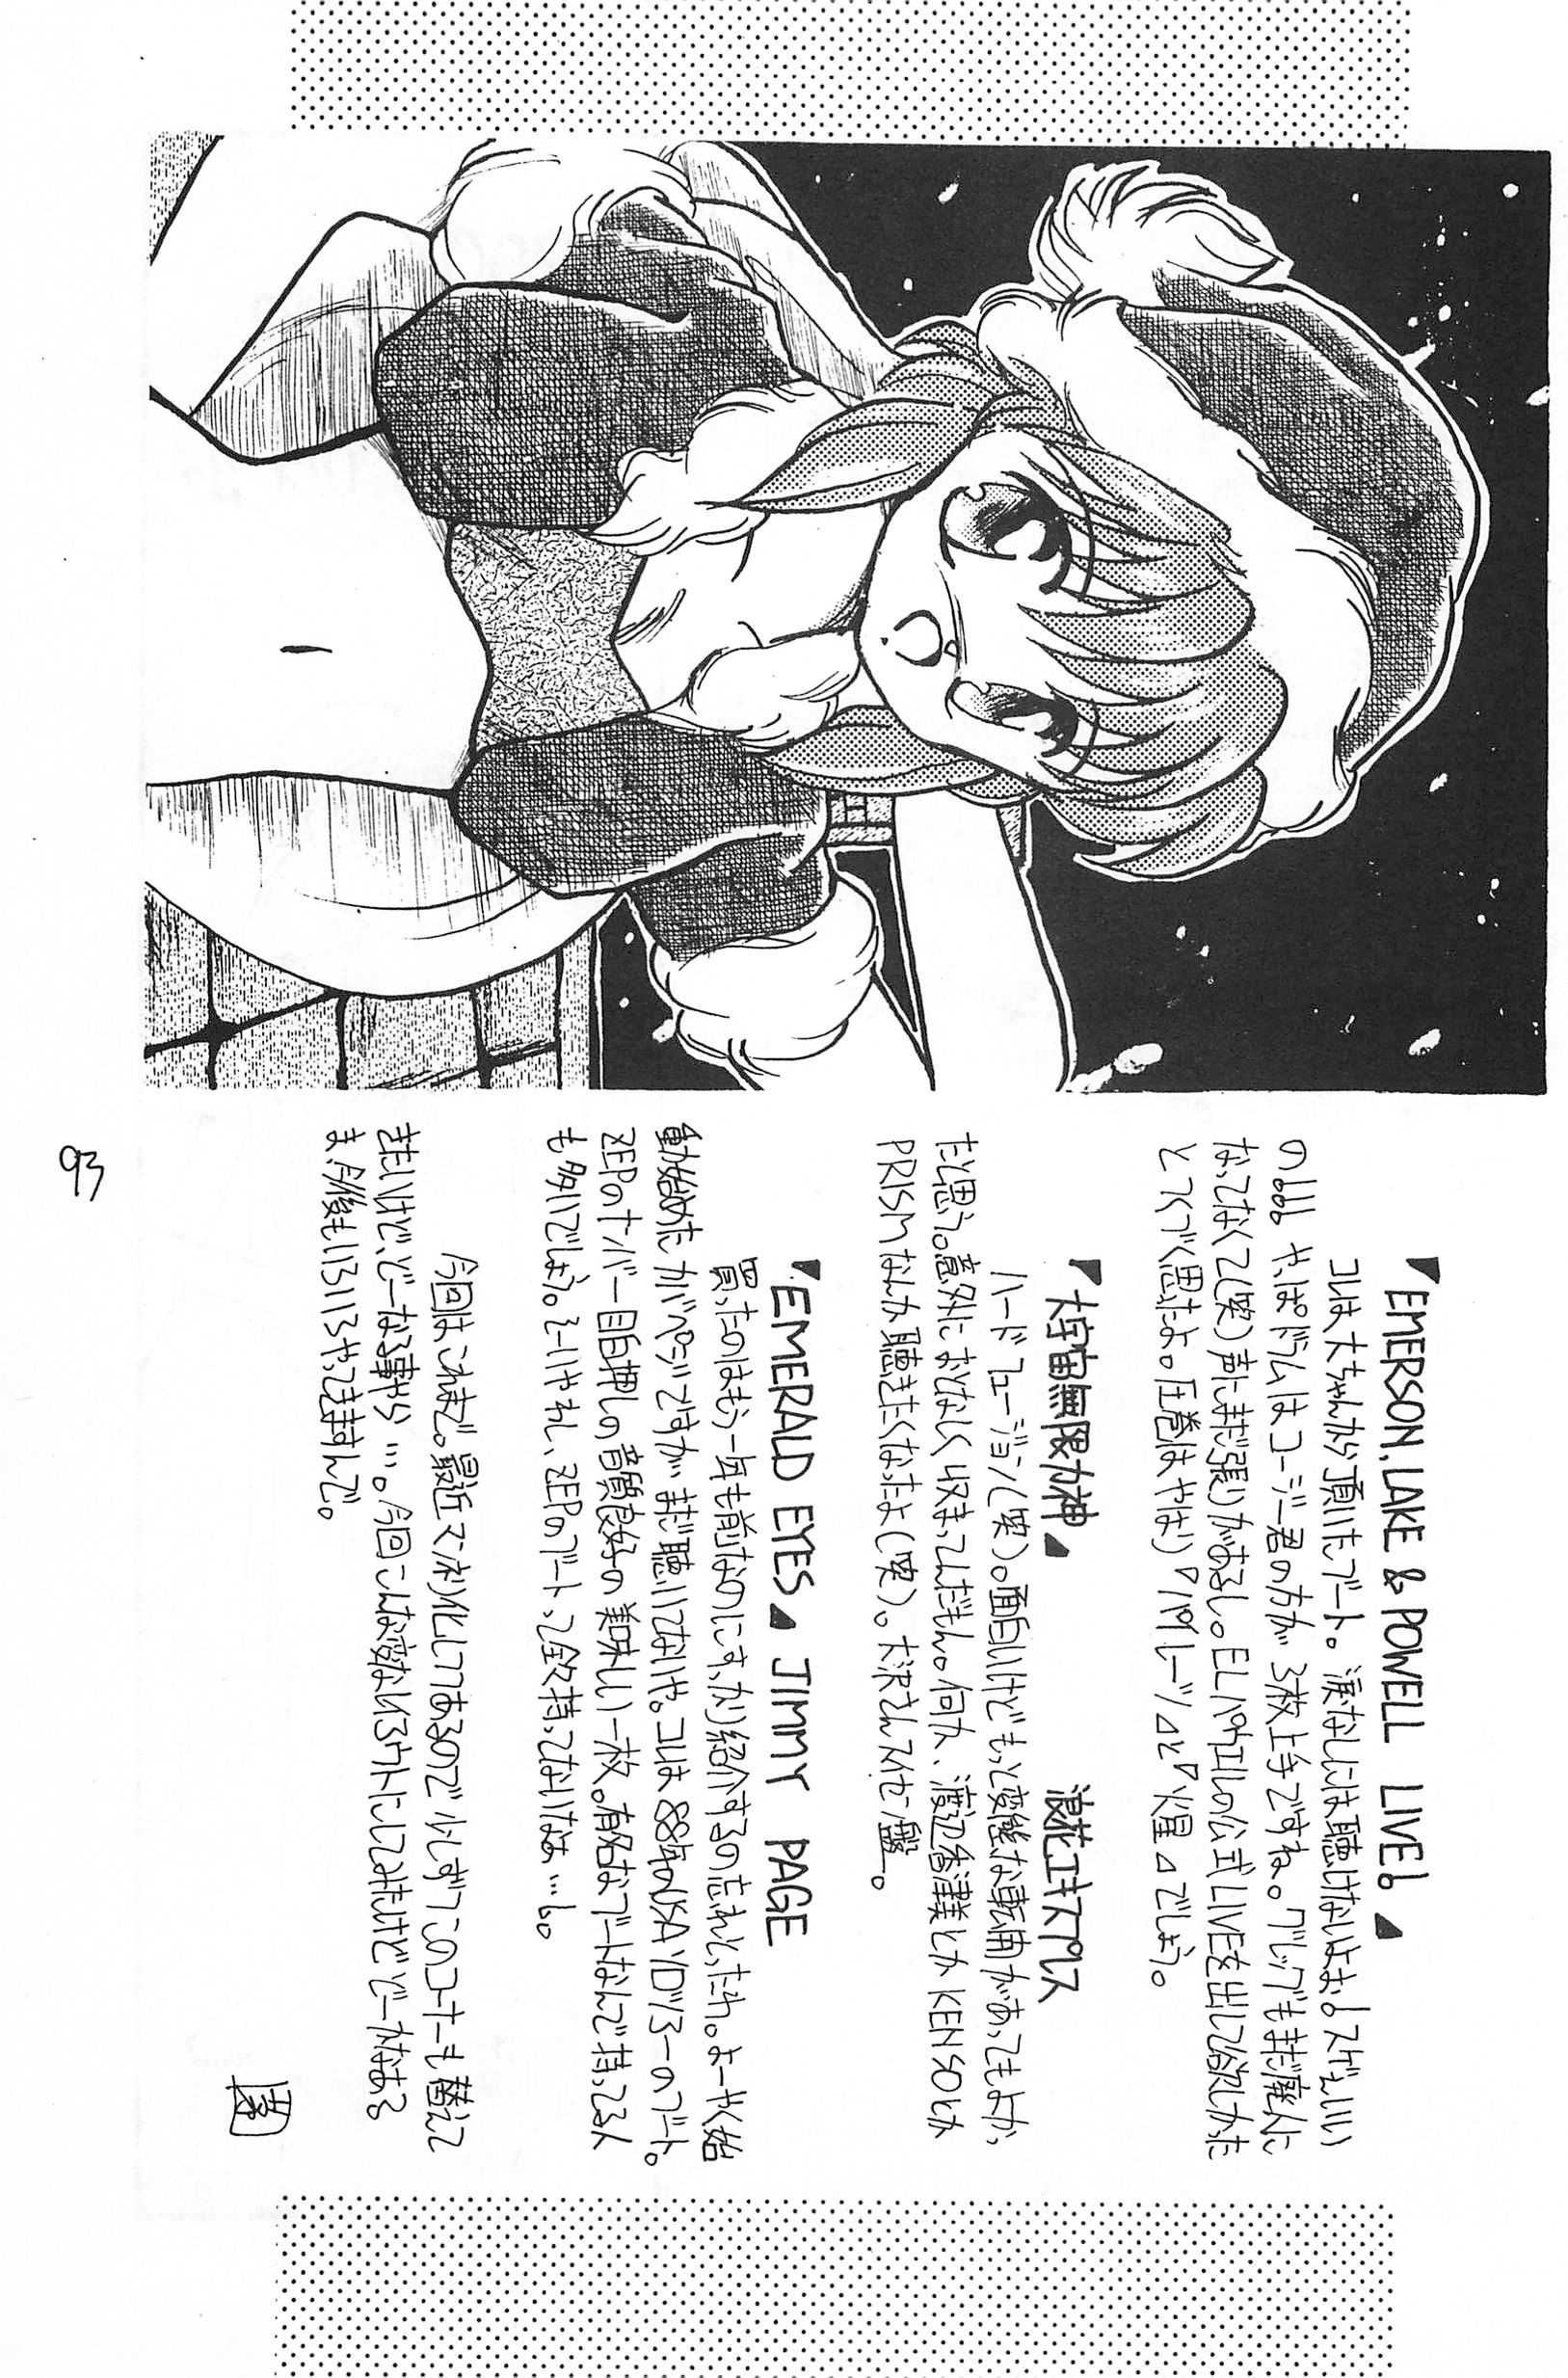 『EMERSON, LAKE & POWELL LIVE!』
コレは大ちゃんから頂いたブート。涙なしには聴けないよお!スゲェいい
のぉぉぉ やっぱドラムはコージー君の方が3枚上手ですね。グレッグもまだ廃人に
なってなくて(笑)声にまだ張りがあるし。ELパウエルの公式LIVEを出して欲しかった
とつくづく思ったよ。圧巻はやはり『パイレーツ』と『火星』でしょう。
『大宇宙無限力神』 浪花エキスプレス
ハードフュージョン(笑)。面白いけどもっと変態な転回があってもよかっ
たと思う。意外におとなしく収まってんだもん。何か、渡辺香津美とかKENSOとか
PRISMなんか聴きたくなったよ(笑)。大沢さんスイセン盤。
『EMERALD EYES』 JIMMY PAGE
買ったのはもう一年も前なのにすっかり紹介するの忘れとったわ。よーやく始
動始めたカバペジですがまだ聴いてないや。コレは88年のUSAソロツアーのブート。
ZEPのナンバー目白押しの音質良好の美味しい一枚。有名なブートなんで持ってる人
も多いでしょう。そーいやオレ、ZEPのブートって全々持ってないなぁ…。
今回はこれまで。最近マンネリ化してあるので少しずつこのコーナーも替えて
きたいけど、どーなる事やら…。今回こんな変なレイアウトにしてみたけどどーかなぁ
ま、今後もいろいろやってきますんで。
93